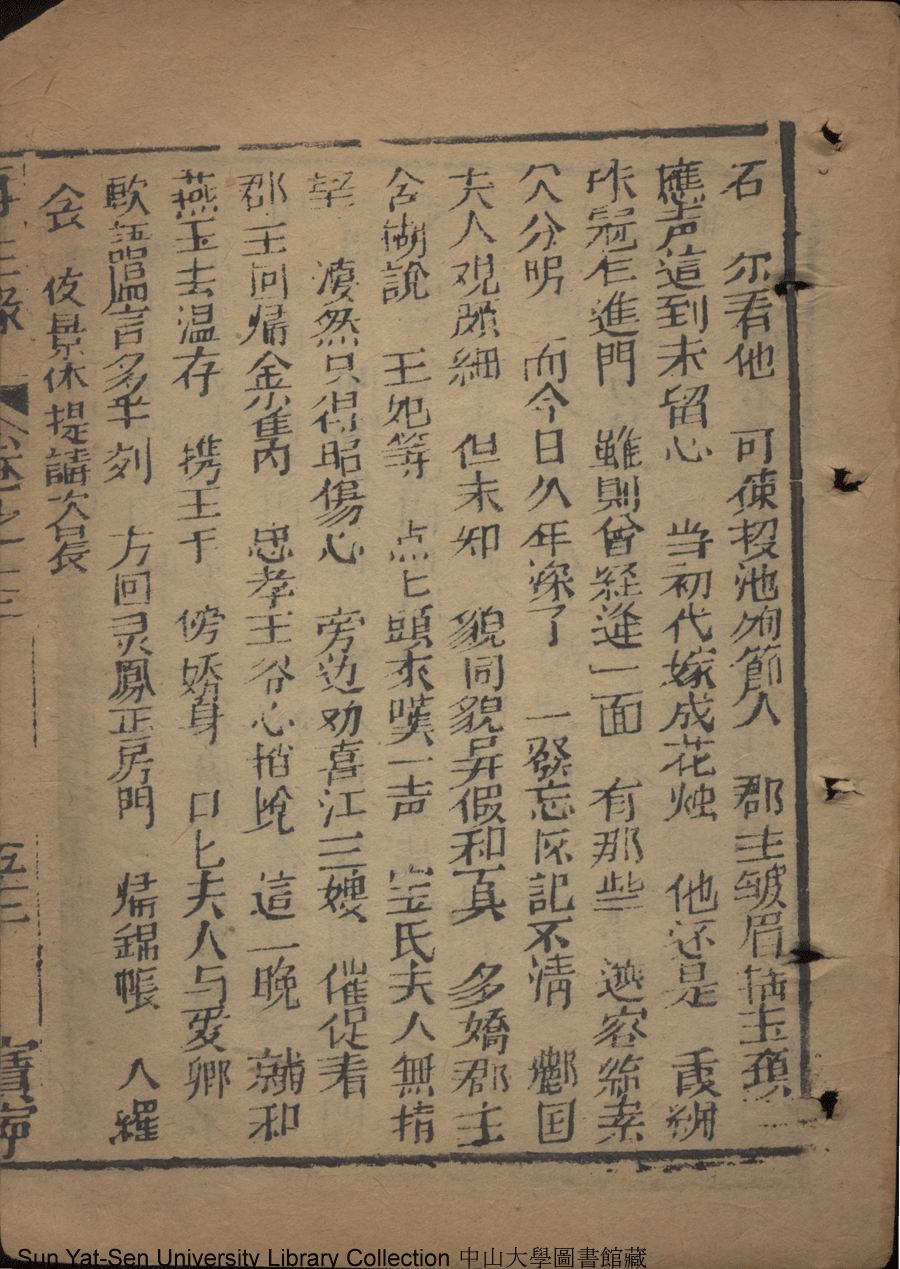 石 尔看他 可使投池殉節人 郡主皱眉摇玉頭
應声這到未留心 当初代嫁成花烛 他还是
珠冠乍進門 雖則曾経逢一面 有那些 遊容緣案
欠分明 而今日久年深了 一發忘灰記不清 酈国
夫人观颇細 但未知 貌同貌异假和真 多嬌郡主
含糊說 王妃等 点匕頭來嘆一声 宝氏夫人無指
望 凄然只得昭傷心 旁边劝喜江三嫂 催促看
郡王回帰金雀内 忠孝王爷心悄悅 這一晚 就和
燕玉去温存 携王于 傍嬌身 口匕夫人与爱卿
軟語温言多半刻 方回灵鳳正房門 帰錦帳 入羅
衾 夜景休提講次晨
再生縁 卷之十三 五十二 寳寧
Sun Yat-Sen University Library Collection 中山大學圖書館藏